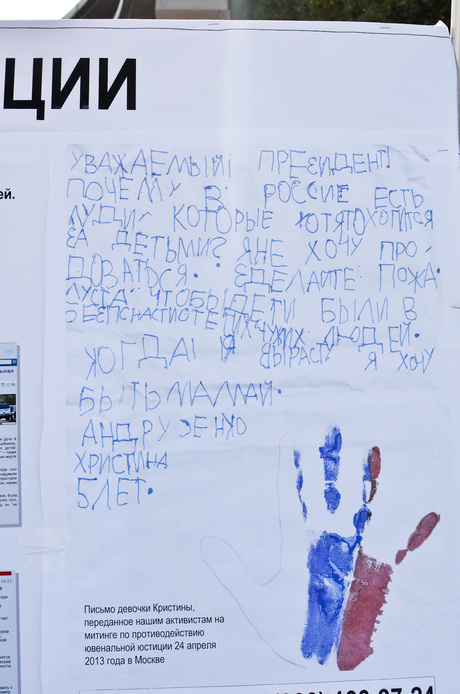 ЦИИ
ей.
УВАЖАЕМЫЙ! ПРЕЗИДЕНТ!
ПОЧЕМУ В РОССИЕ ЕСТЬ
ЛУДИ КОТОРЫЕ ХОТЯТОХОТИТСЯ
ЗА ДЕТЬМИ? ЯНЕ ХОЧУ ПРО-
ДОВАТЬСЯ. СДЕЛАЙТЕ ПОЖА-
ЛУСТА ЧТОБЫ ДЕТИ БЫЛИ В
ЧУЖИХ ЛЮДЕЙ.
КОГДА Я ВЫРАСТУ Я ХОЧУ
БЫТЬ МАМАЙ.
АНДРУЗЕНКО
ХРИСТИНА
5 ЛЕТ.
Письмо девочки Кристины,
переданное нашим активистам на
митинге по противодействию
ювенальной юстиции 24 апреля
2013 года в Москве